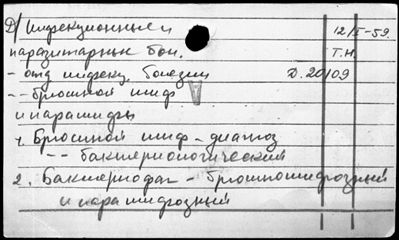 Д/ Инфекционные и 12/I-59.
паразитарные бол. Т.Н.
- отд инфекц. болезни Д. 20109
-- брюшной тиф
и паратифы
1. Брюшной тиф - диагноз
-- бактериологический
2. Бактериофаг - брюшнотифозный
и паратифозный